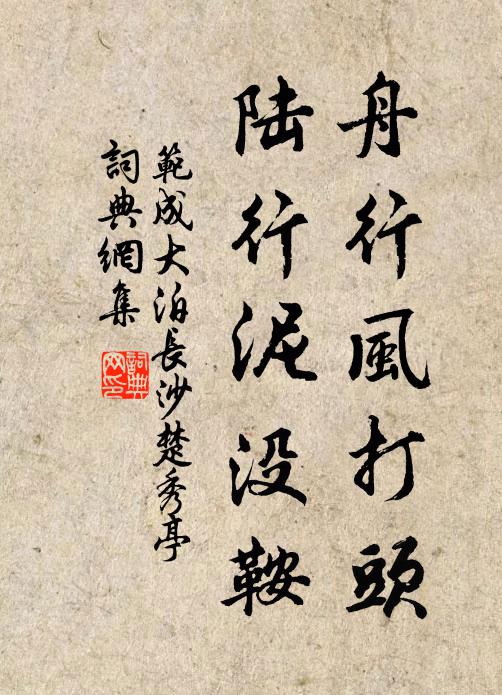 舟行風打頭
陆行泥没鞍
範成大泊長沙楚秀亭
詞典網集
詞典網印